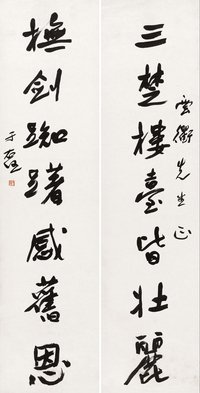 三楚樓臺皆壮麗
雲衢先生正
撫劍踟躇感舊恩
于右任